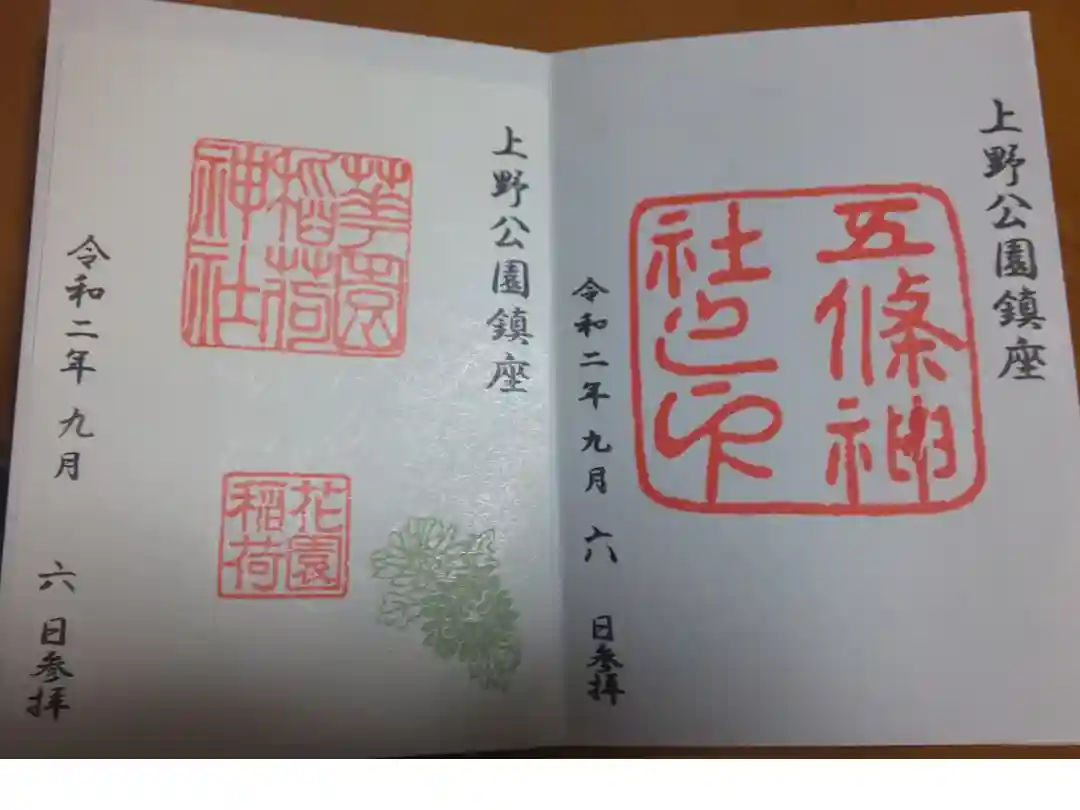 上野公園鎮座
五條神
社之印
令和二年九月六日参拝
上野公園鎮座
華園
稲荷
神社
花園
稲荷
令和二年九月六日参拝